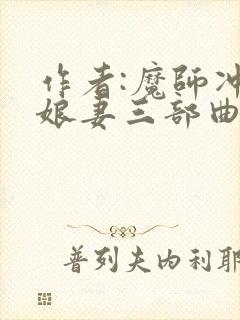 作者:魔師冲
娘妻三部曲
普列夫内利耶